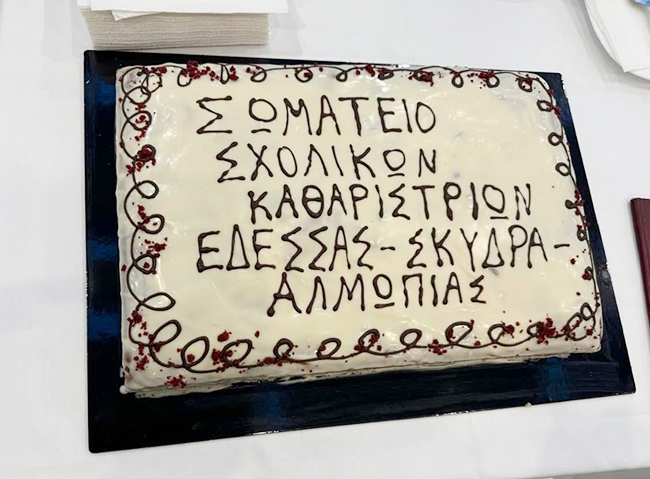 ΣΩΜΑΤΕΙΟ
ΣΧΟΛΙΚΩΝ
ΚΑΘΑΡΙΣΤΡΙΩΝ
ΕΔΕΣΣΑΣ-ΣΚΥΔΡΑ-
ΑΛΜΩΠΙΑΣ